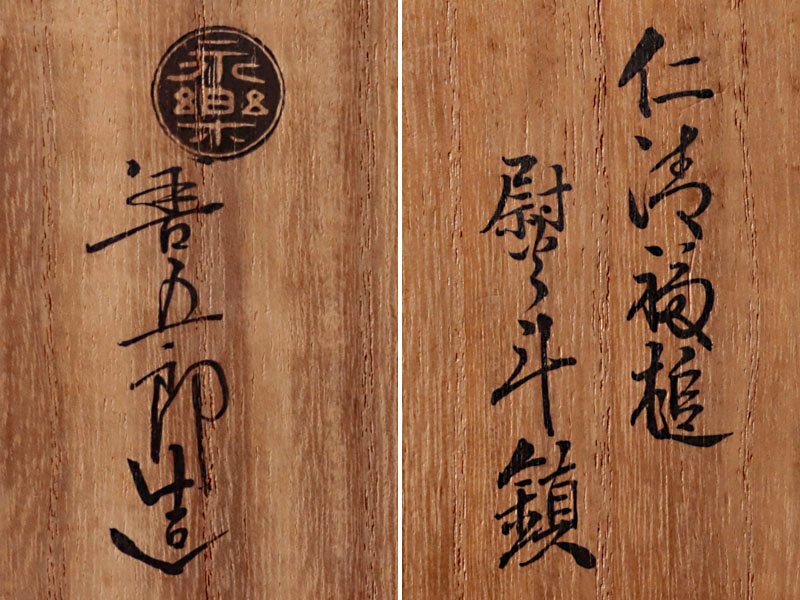 仁清福槌
熨斗鎮
永樂
善五郎造